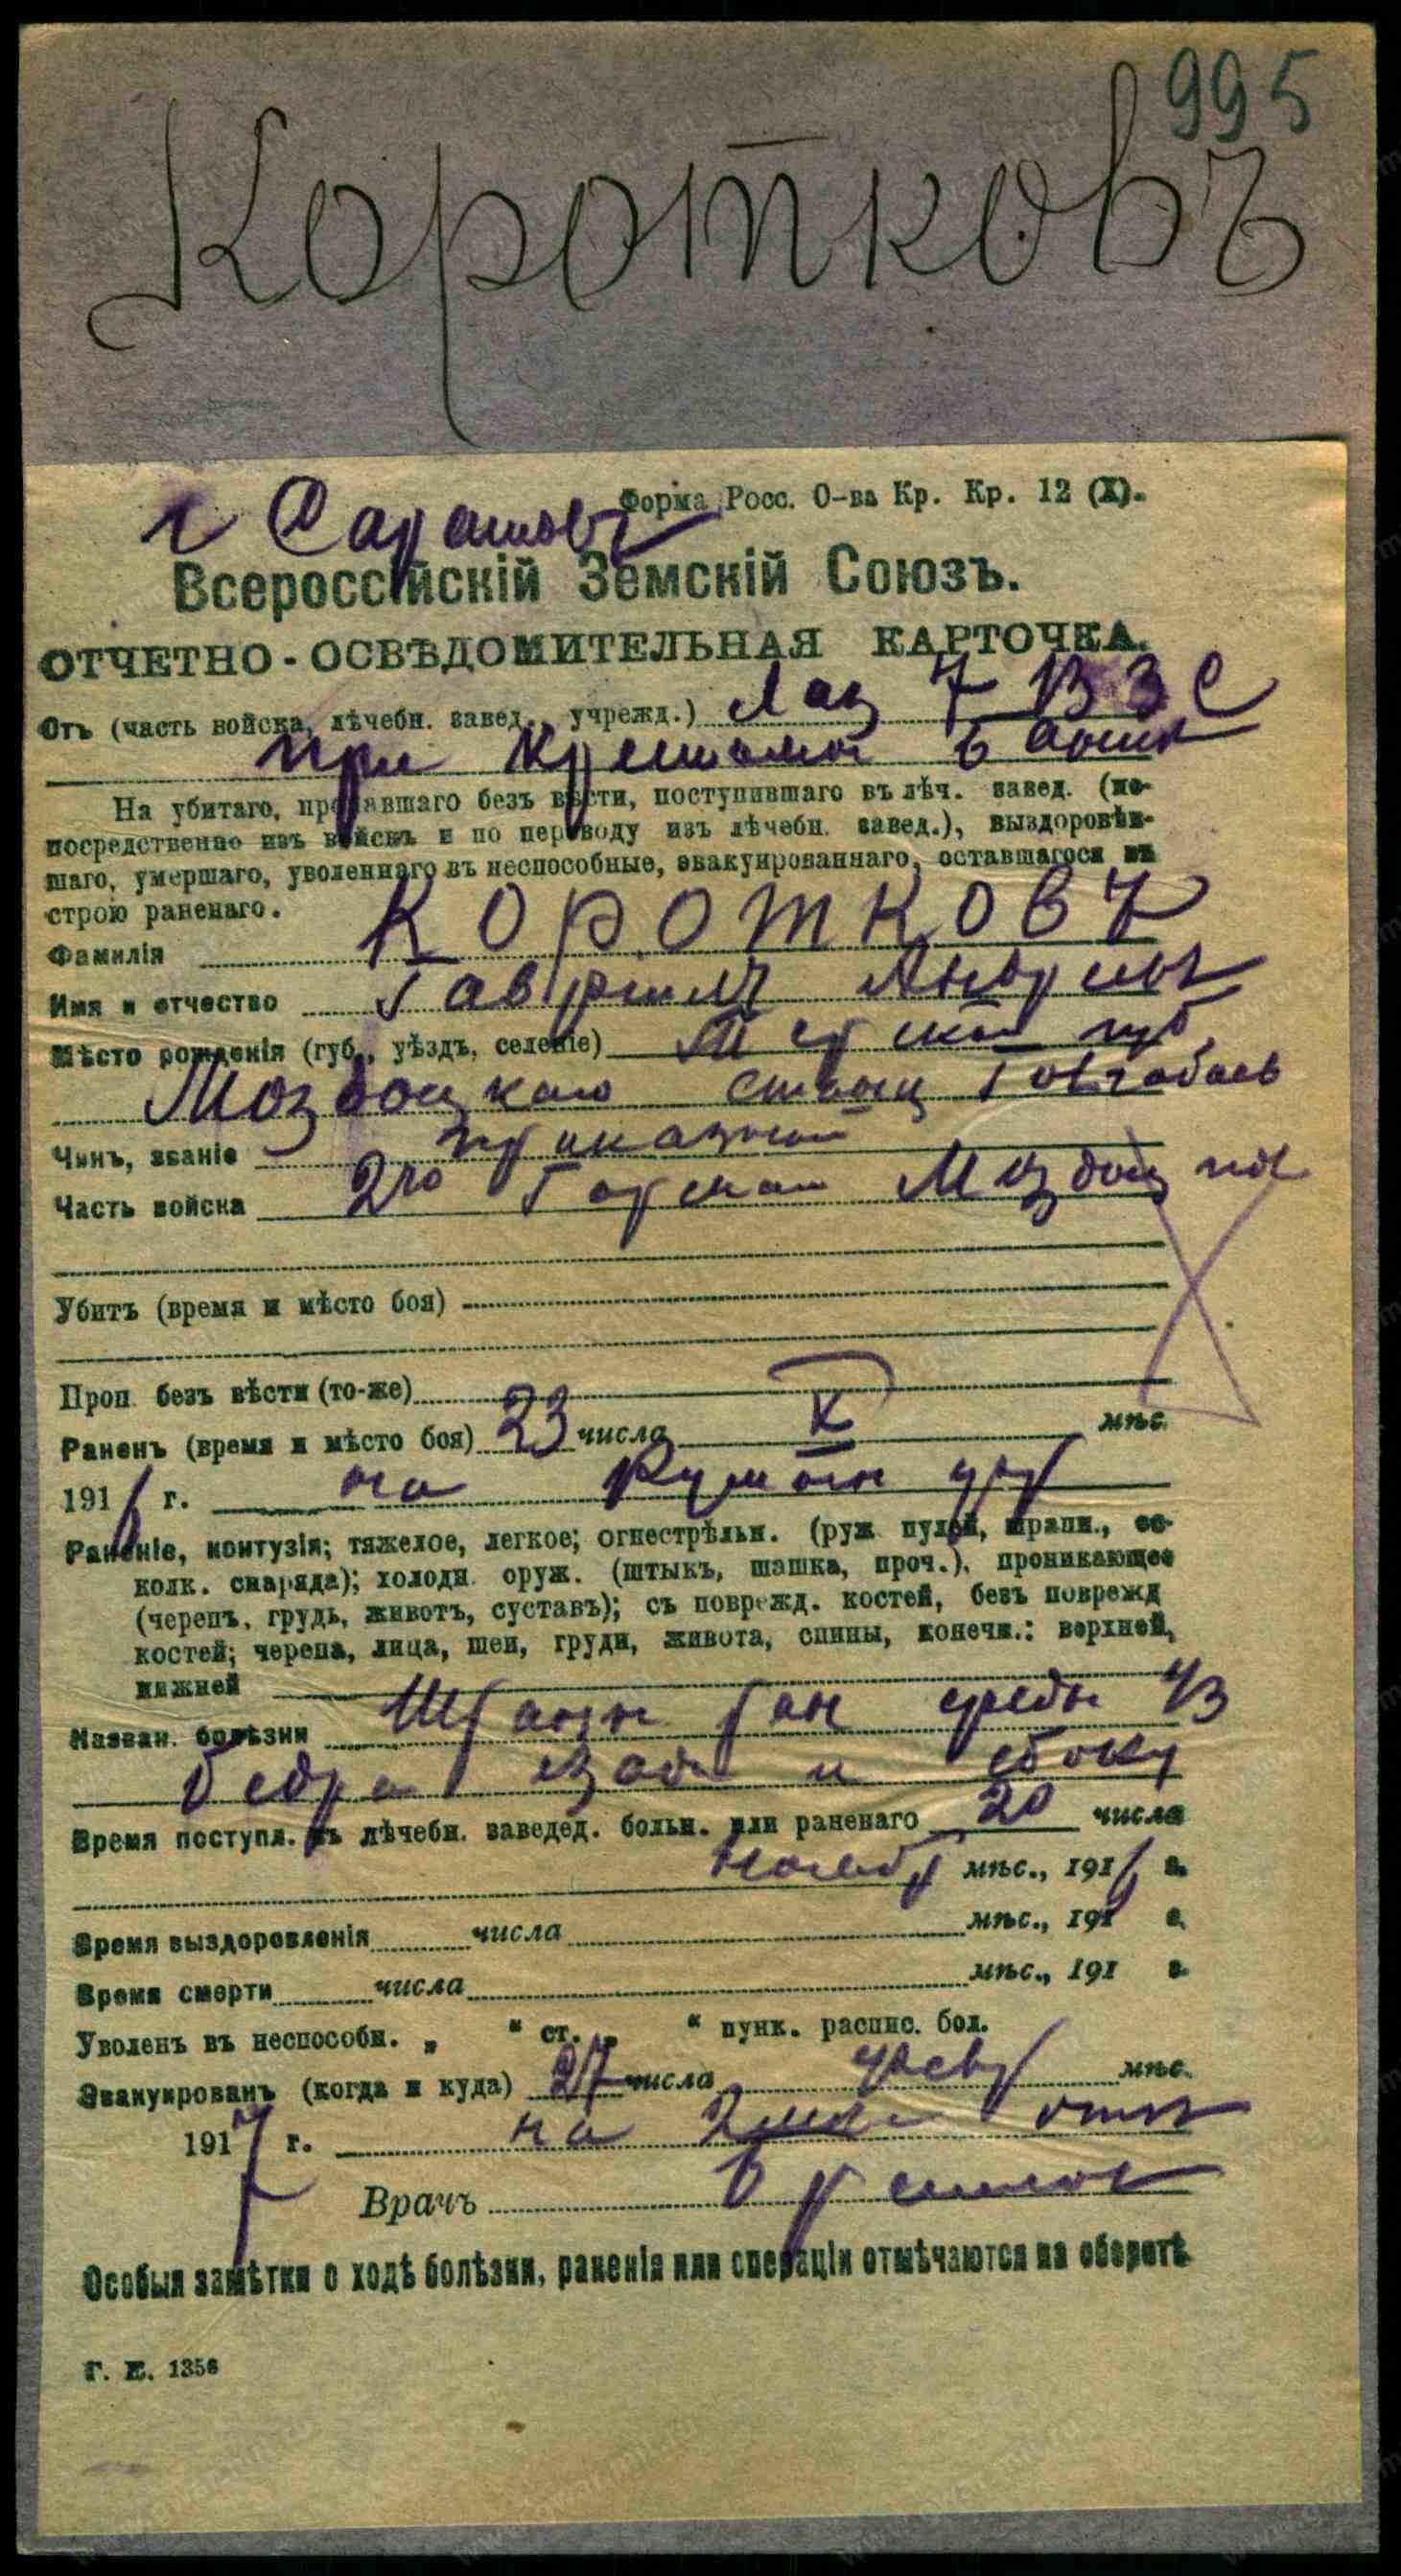 995
Коротковъ
Форма Росс. О-ва Кр. Кр. 12 (X).
г Саратовъ
Всероссійскій Земскій Союзъ.
ОТЧЕТНО-ОСВѢДОМИТЕЛЬНАЯ КАРТОЧКА.
Отъ (часть войска, лѣчебн. завед., учрежд.) Лаз 7 ВЗС
при
На убитаго, пропавшаго безъ вѣсти, поступившаго въ лѣч. завед. (не-
посредственно изъ войскъ и по переводу изъ лѣчебн. завед.), выздоровѣв-
шаго, умершаго, уволеннаго въ неспособные, эвакуированнаго, оставшагося въ
строю раненаго.
Фамилія Коротковъ
Имя и отчество Гавріилъ Андреевъ
Мѣсто рожденія (губ., уѣздъ, селеніе) Терской губ.
Моздоцкаго
Чинъ, званіе приказный
Часть войска 2го Горскаго Моздоц пол
Убитъ (время и мѣсто боя)
Проп. безъ вѣсти (то-же)
Раненъ (время и мѣсто боя) 23 числа X мѣс.
1916 г. на Румын
Раненіе, контузія; тяжелое, легкое; огнестрѣльн. (руж. пулей, шрапн., ос-
колк. снаряда); холодн. оруж. (штыкъ, шашка, проч.), проникающее
(черепъ, грудь, животъ, суставъ); съ поврежд. костей, безъ поврежд
костей; черепа, лица, шеи, груди, живота, спины, конечн.: верхней,
нижней
Назван. болѣзни Шрапн ран средн 1/3
бедра сзади и сбоку
Время поступл. въ лѣчебн. заведед. больн. или раненаго 20 числа
ноябр мѣс., 1916 г.
Время выздоровленія числа мѣс., 191 г.
Время смерти числа мѣс., 191 г.
Уволенъ въ неспособн. „ “ ст. „ “ пунк. распис. бол.
Эвакуированъ (когда и куда) 27 числа февр мѣс.
1917 г. на
Врачъ
Особыя замѣтки о ходѣ болѣзни, раненія или операціи отмѣчаются на оборотѣ
Г. Е. 1356